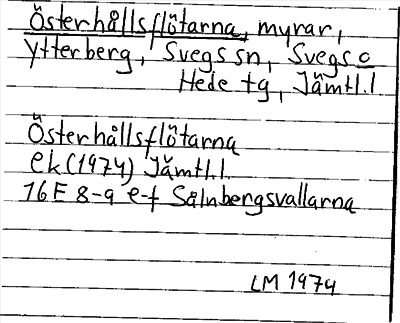 Österhållsflötarna, myrar,
Ytterberg, Svegs sn, Svegs o
Hede tg, Jämtl.l
Österhållsflötarna
ek (1974) Jämtl.l.
16E 8-9 e-f Sålnbergsvallarna
LM 1974